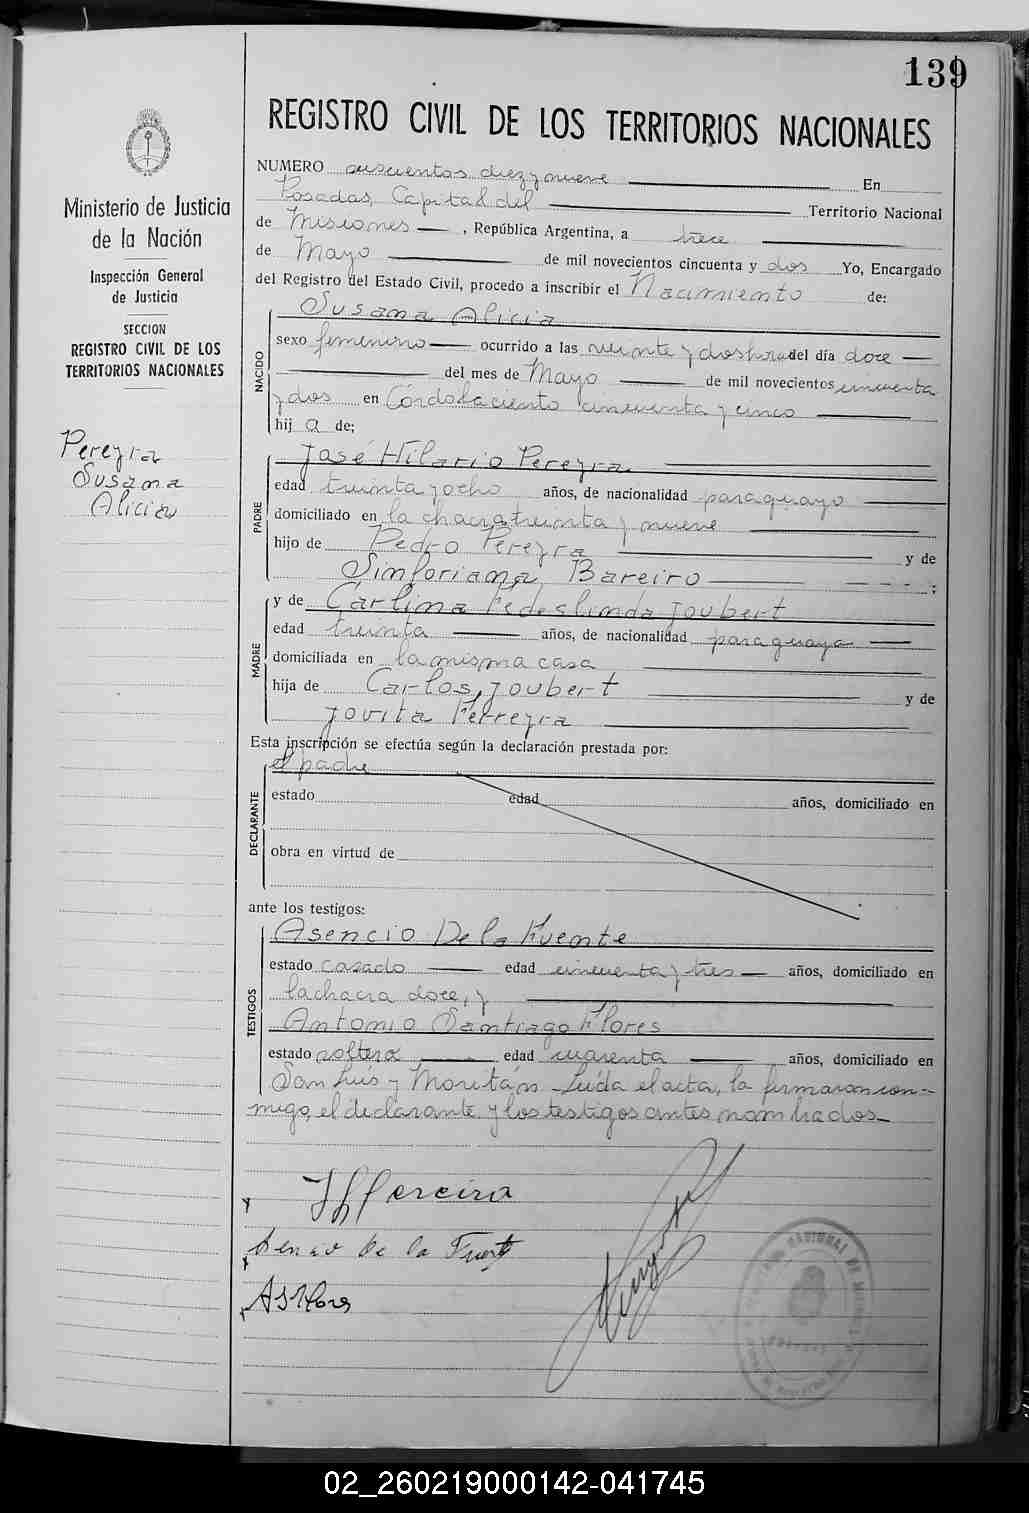 139
REGISTRO CIVIL DE LOS TERRITORIOS NACIONALES
Ministerio de Justicia
de la Nación
Inspección General
de Justicia
SECCION
REGISTRO CIVIL DE LOS
TERRITORIOS NACIONALES
Pereyra
Susana
Alicia
NUMERO diez y nueve En
Posadas, Capital del Territorio Nacional
de Misiones, República Argentina, a trece
de Mayo de mil novecientos cincuenta y dos Yo, Encargado
del Registro del Estado Civil, procedo a inscribir el Nacimiento de:
NACIDO
Susana Alicia
sexo femenino ocurrido a las veinte y dos horas del día doce
del mes de Mayo de mil novecientos cincuenta
y dos en Córdoba ciento cincuenta y cinco
hij a de;
PADRE
José Hilario Pereyra
edad treinta y ocho años, de nacionalidad paraguayo
domiciliado en la chacra treinta y nueve
hijo de Pedro Pereyra y de
Sinforiana Bareiro ;
MADRE
y de Carlina Fedeslinda Joubert
edad treinta años, de nacionalidad paraguaya
domiciliada en la misma casa
hija de Carlos Joubert y de
Jovita Ferreyra
Esta inscripción se efectúa según la declaración prestada por:
DECLARANTE
el padre
estado edad años, domiciliado en
obra en virtud de
ante los testigos:
TESTIGOS
Asencio De la Fuente
estado casado edad cincuenta y tres años, domiciliado en
la chacra doce, y
Antonio Santiago Flores
estado soltero edad cuarenta años, domiciliado en
San Luis y Moritán. Leída el acta, la firmaron con-
migo, el declarante y los testigos antes nombrados
JHPereira
De la Fuente
ASFlores
02_260219000142-041745